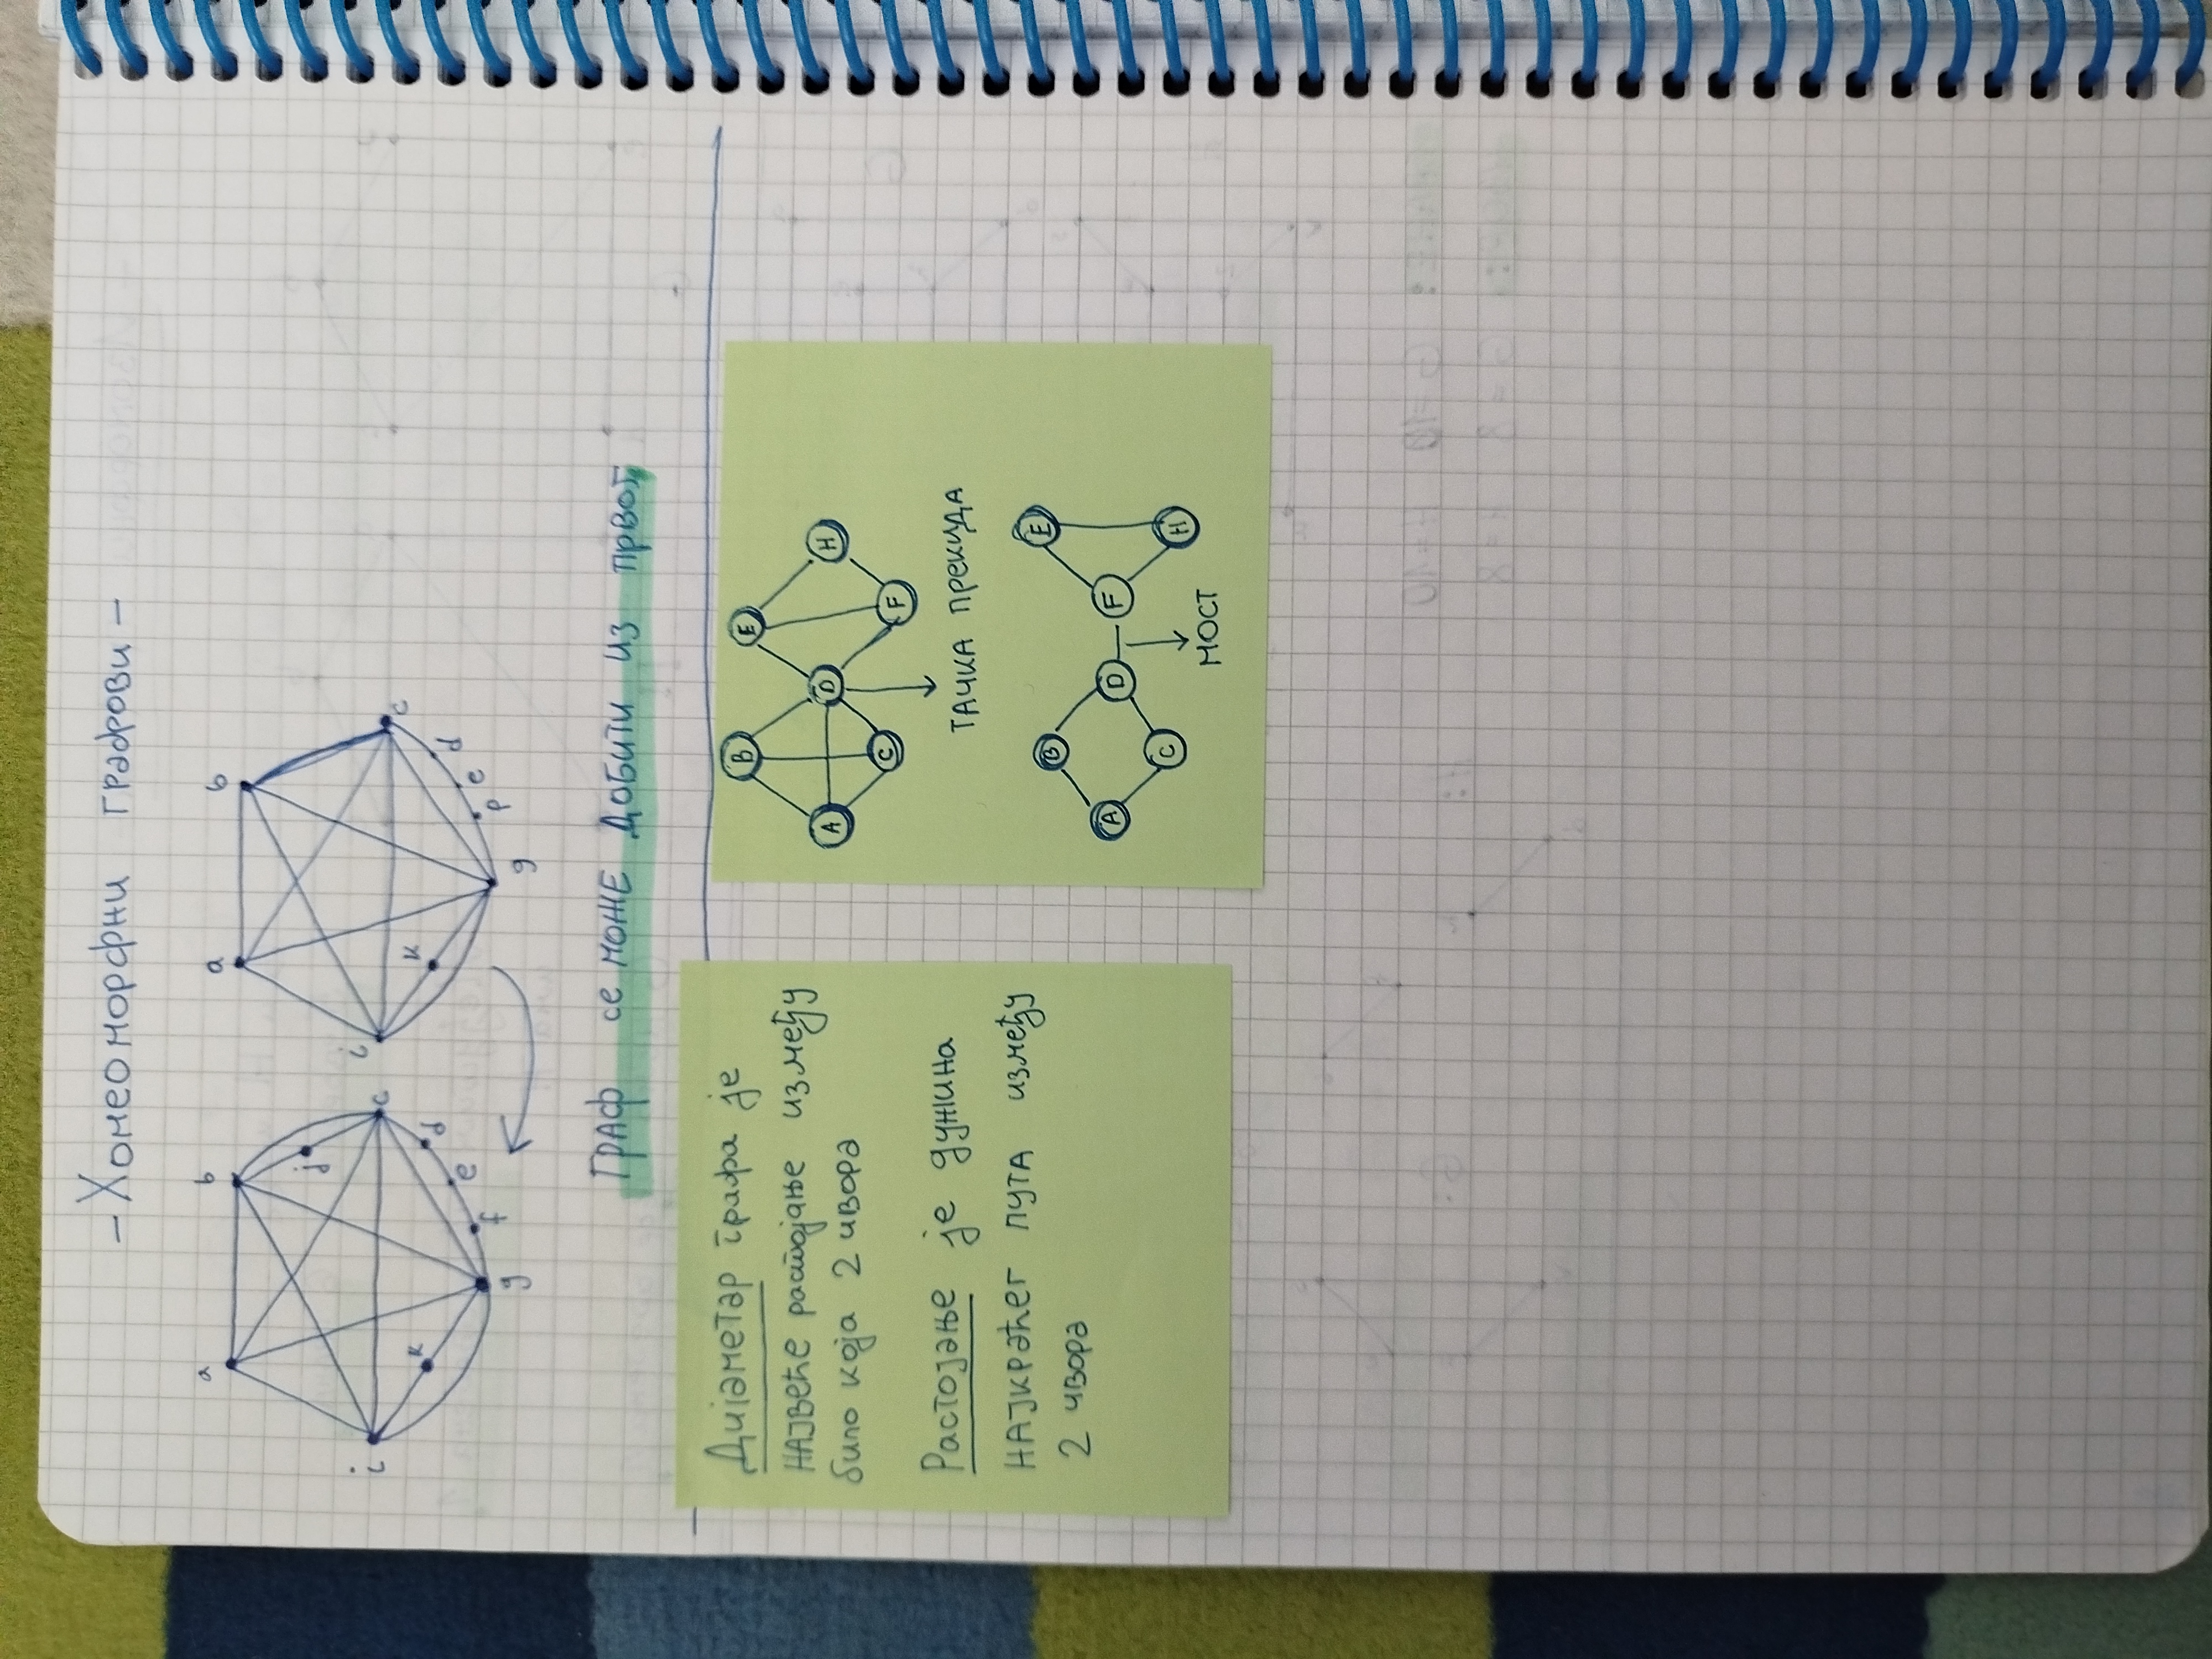 - Хомеоморфни графови -
a b c d e f g i j к
a b c d e f g i к
Граф се може добити из првог
Дијаметар графа је
највеће растојање између
било која 2 чвора
Растојање је дужина
најкраћег пута између
2 чвора
A B C D E F H
ТАЧКА ПРЕКИДА
A B C D F E H
МОСТ